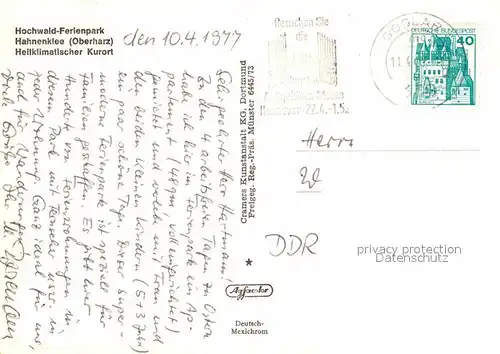 Hochwald-Ferienpark
Hahnenklee (Oberharz)
Heilklimatischer Kurort
den 10.4.1977
Besuchen Sie
die
Hannover · 22.4.-1.5.
GOSLAR
11
DEUTSCHE BUNDESPOST
40
Sehr geehrter Herr Hartmann!
Zu den 4 arbeitsfreien Tagen zu Ostern
habe ich hier im Ferienpark ein Ap-
partement (48qm, voll eingerichtet)
gemietet und wir mit Frau und
den beiden kleinen Kindern (5+3 Jahre)
ein paar schöne Tage. Dieser super-
moderne Ferienpark ist speziell für
Familien geschaffen. Es gibt hier
Hunderte von Ferienwohnungen in
diesem Park mit Fernseher usw. in
jeder Wohnung. Ganz ideal für uns,
und für Wanderungen
Viele Grüße Ihr
Cramers Kunstanstalt KG, Dortmund
Freigeg. Reg.-Präs. Münster 6445/73
*
Agfacolor
Deutsch-
Mexichrom
Herrn
W
DDR
privacy protection
Datenschutz